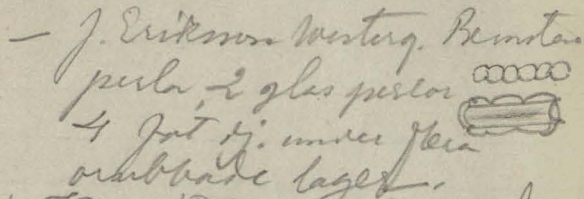 — J. Eriksson Westerg. Bernstens
perlor, 2 glas perlor
4 fot dj. under flera
orubbade lager.